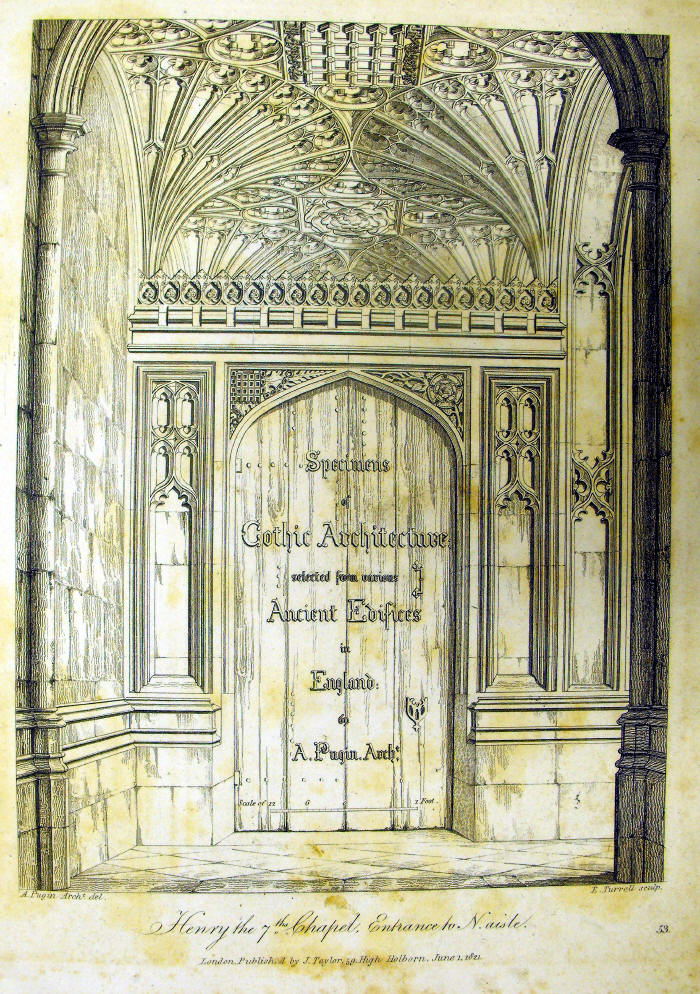 Specimens
of
Gothic Architecture;
selected from various
Ancient Edifices
in
England:
by
A. Pugin. Archt.
Scale of 12 6 1 Foot
A. Pugin Archt. del.
E. Turrell sculp.
Henry the 7ths. Chapel, Entrance to N. aisle.
53.
London, Publish.d by J. Taylor, 59, High Holborn, June 1, 1821.